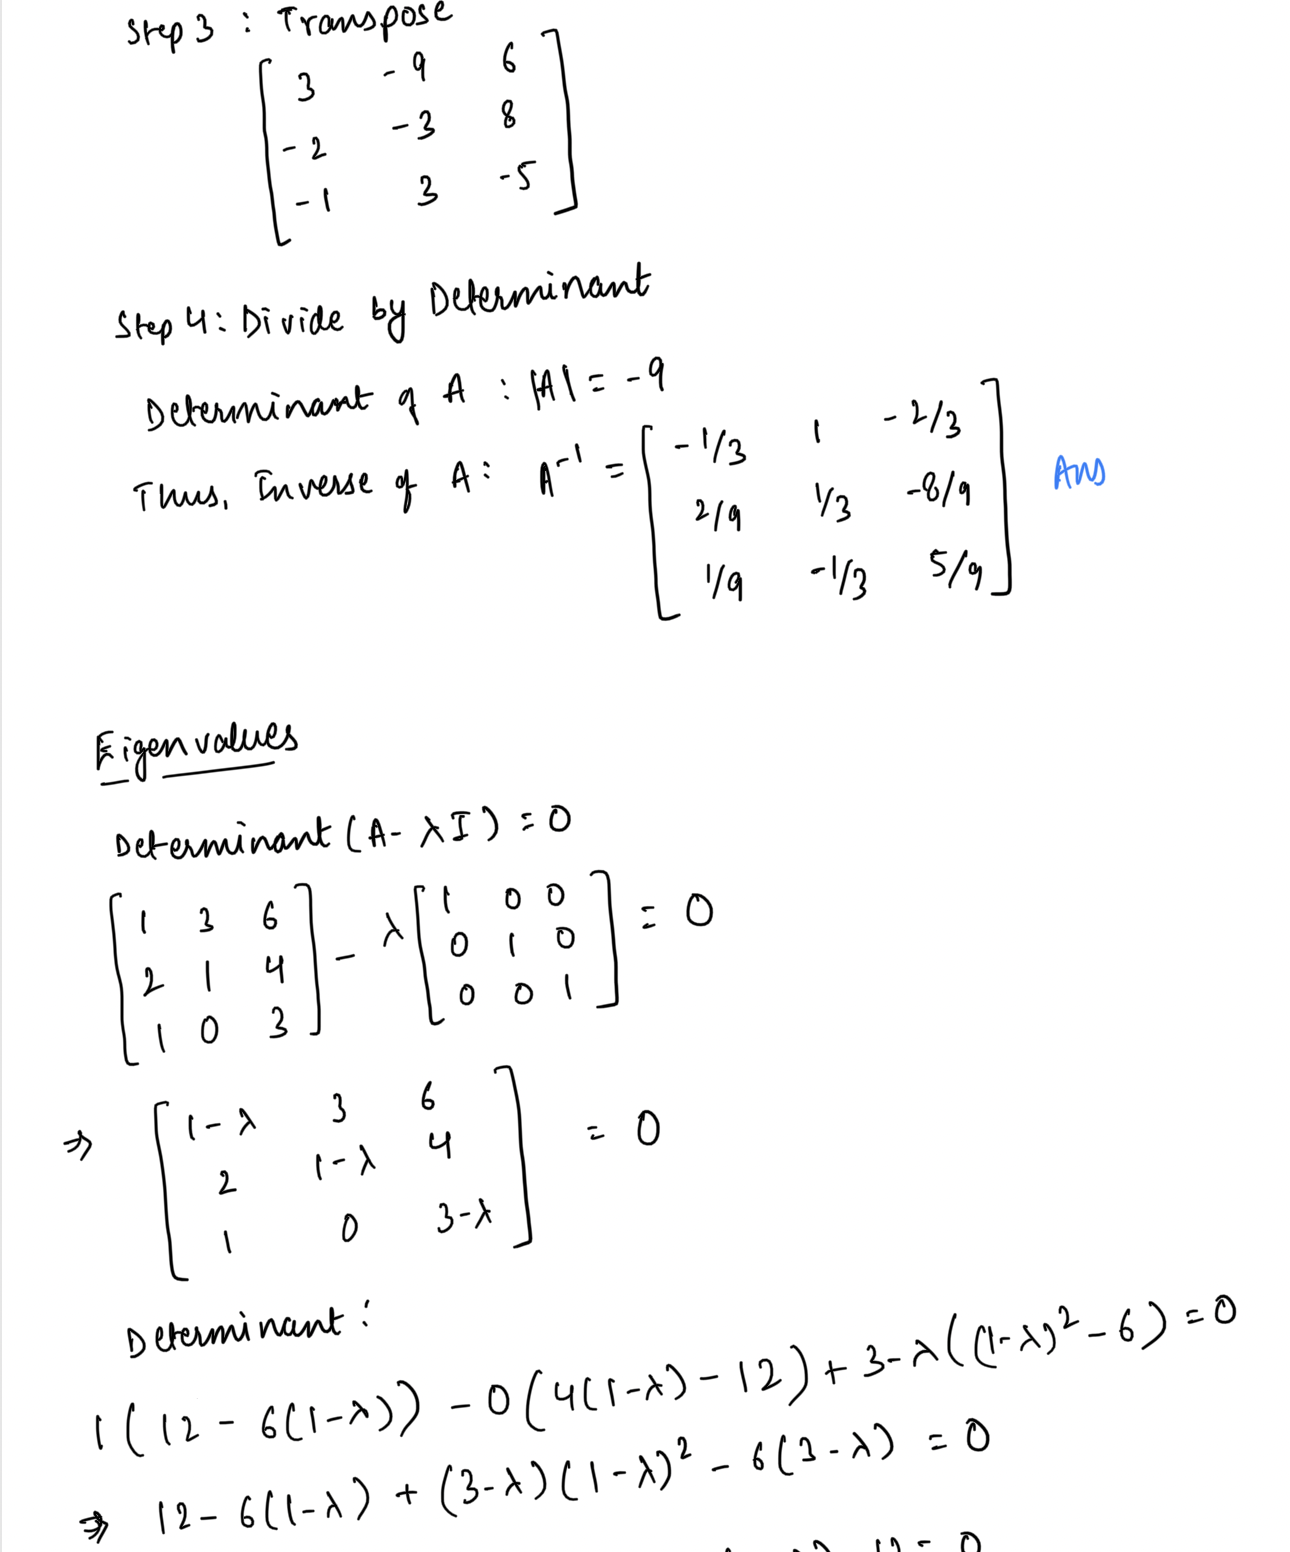 Step 3 : Transpose
[ 3 -9 6
-2 -3 8
-1 3 -5 ]
Step 4: Divide by Determinant
Determinant of A : |A| = -9
Thus, Inverse of A: A⁻¹ = [ -1/3 1 -2/3
2/9 1/3 -8/9
1/9 -1/3 5/9 ] Ans
Eigen values
Determinant (A - λI) = 0
[ 1 3 6
2 1 4
1 0 3 ] - λ [ 1 0 0
0 1 0
0 0 1 ] = 0
⇒ [ 1-λ 3 6
2 1-λ 4
1 0 3-λ ] = 0
Determinant :
1(12 - 6(1-λ)) - 0(4(1-λ) - 12) + 3-λ((1-λ)² - 6) = 0
⇒ 12 - 6(1-λ) + (3-λ)(1-λ)² - 6(3-λ) = 0